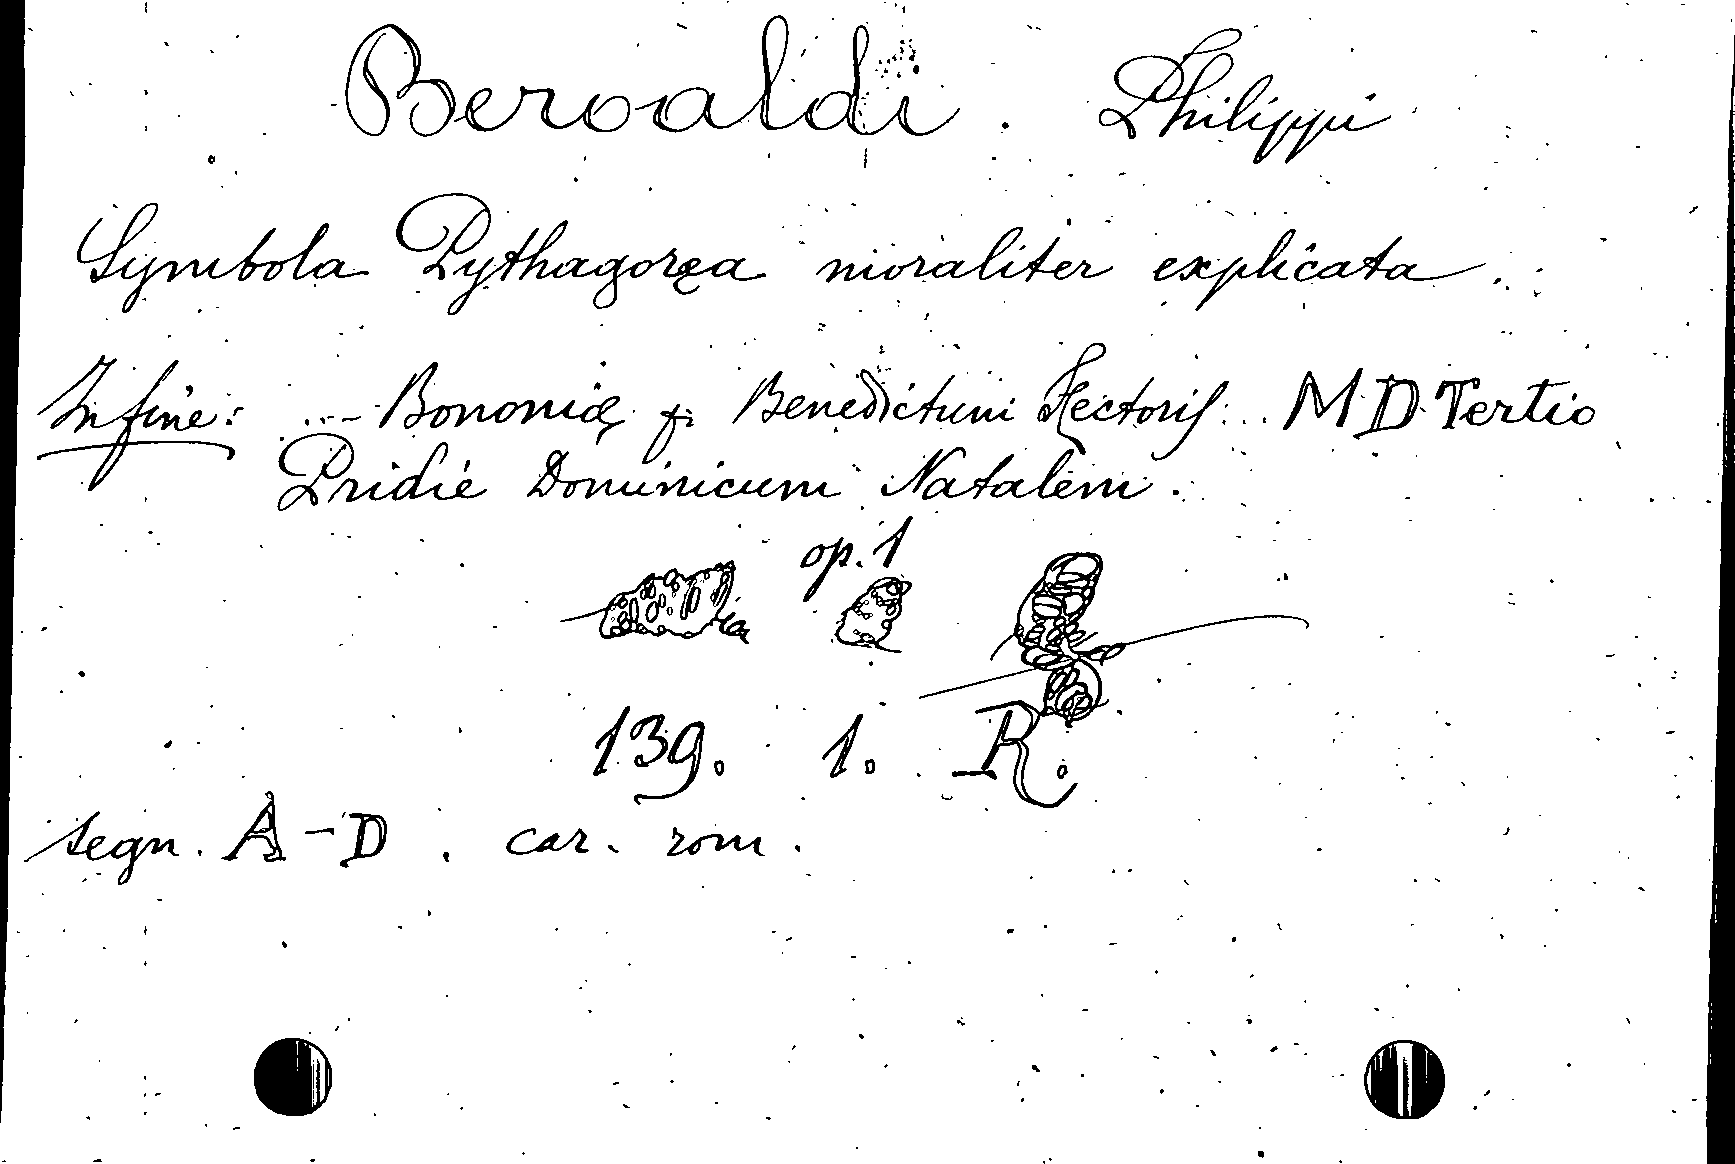 Beroaldi. Philippi
Symbola Pythagoręa moraliter explicata.
In fine: ... Bononię p. Benedictum Hectoris... MD Tertio
Pridie Dominicum Natalem.
op. 1
139. 1. R.
segn. A-D. car. rom.